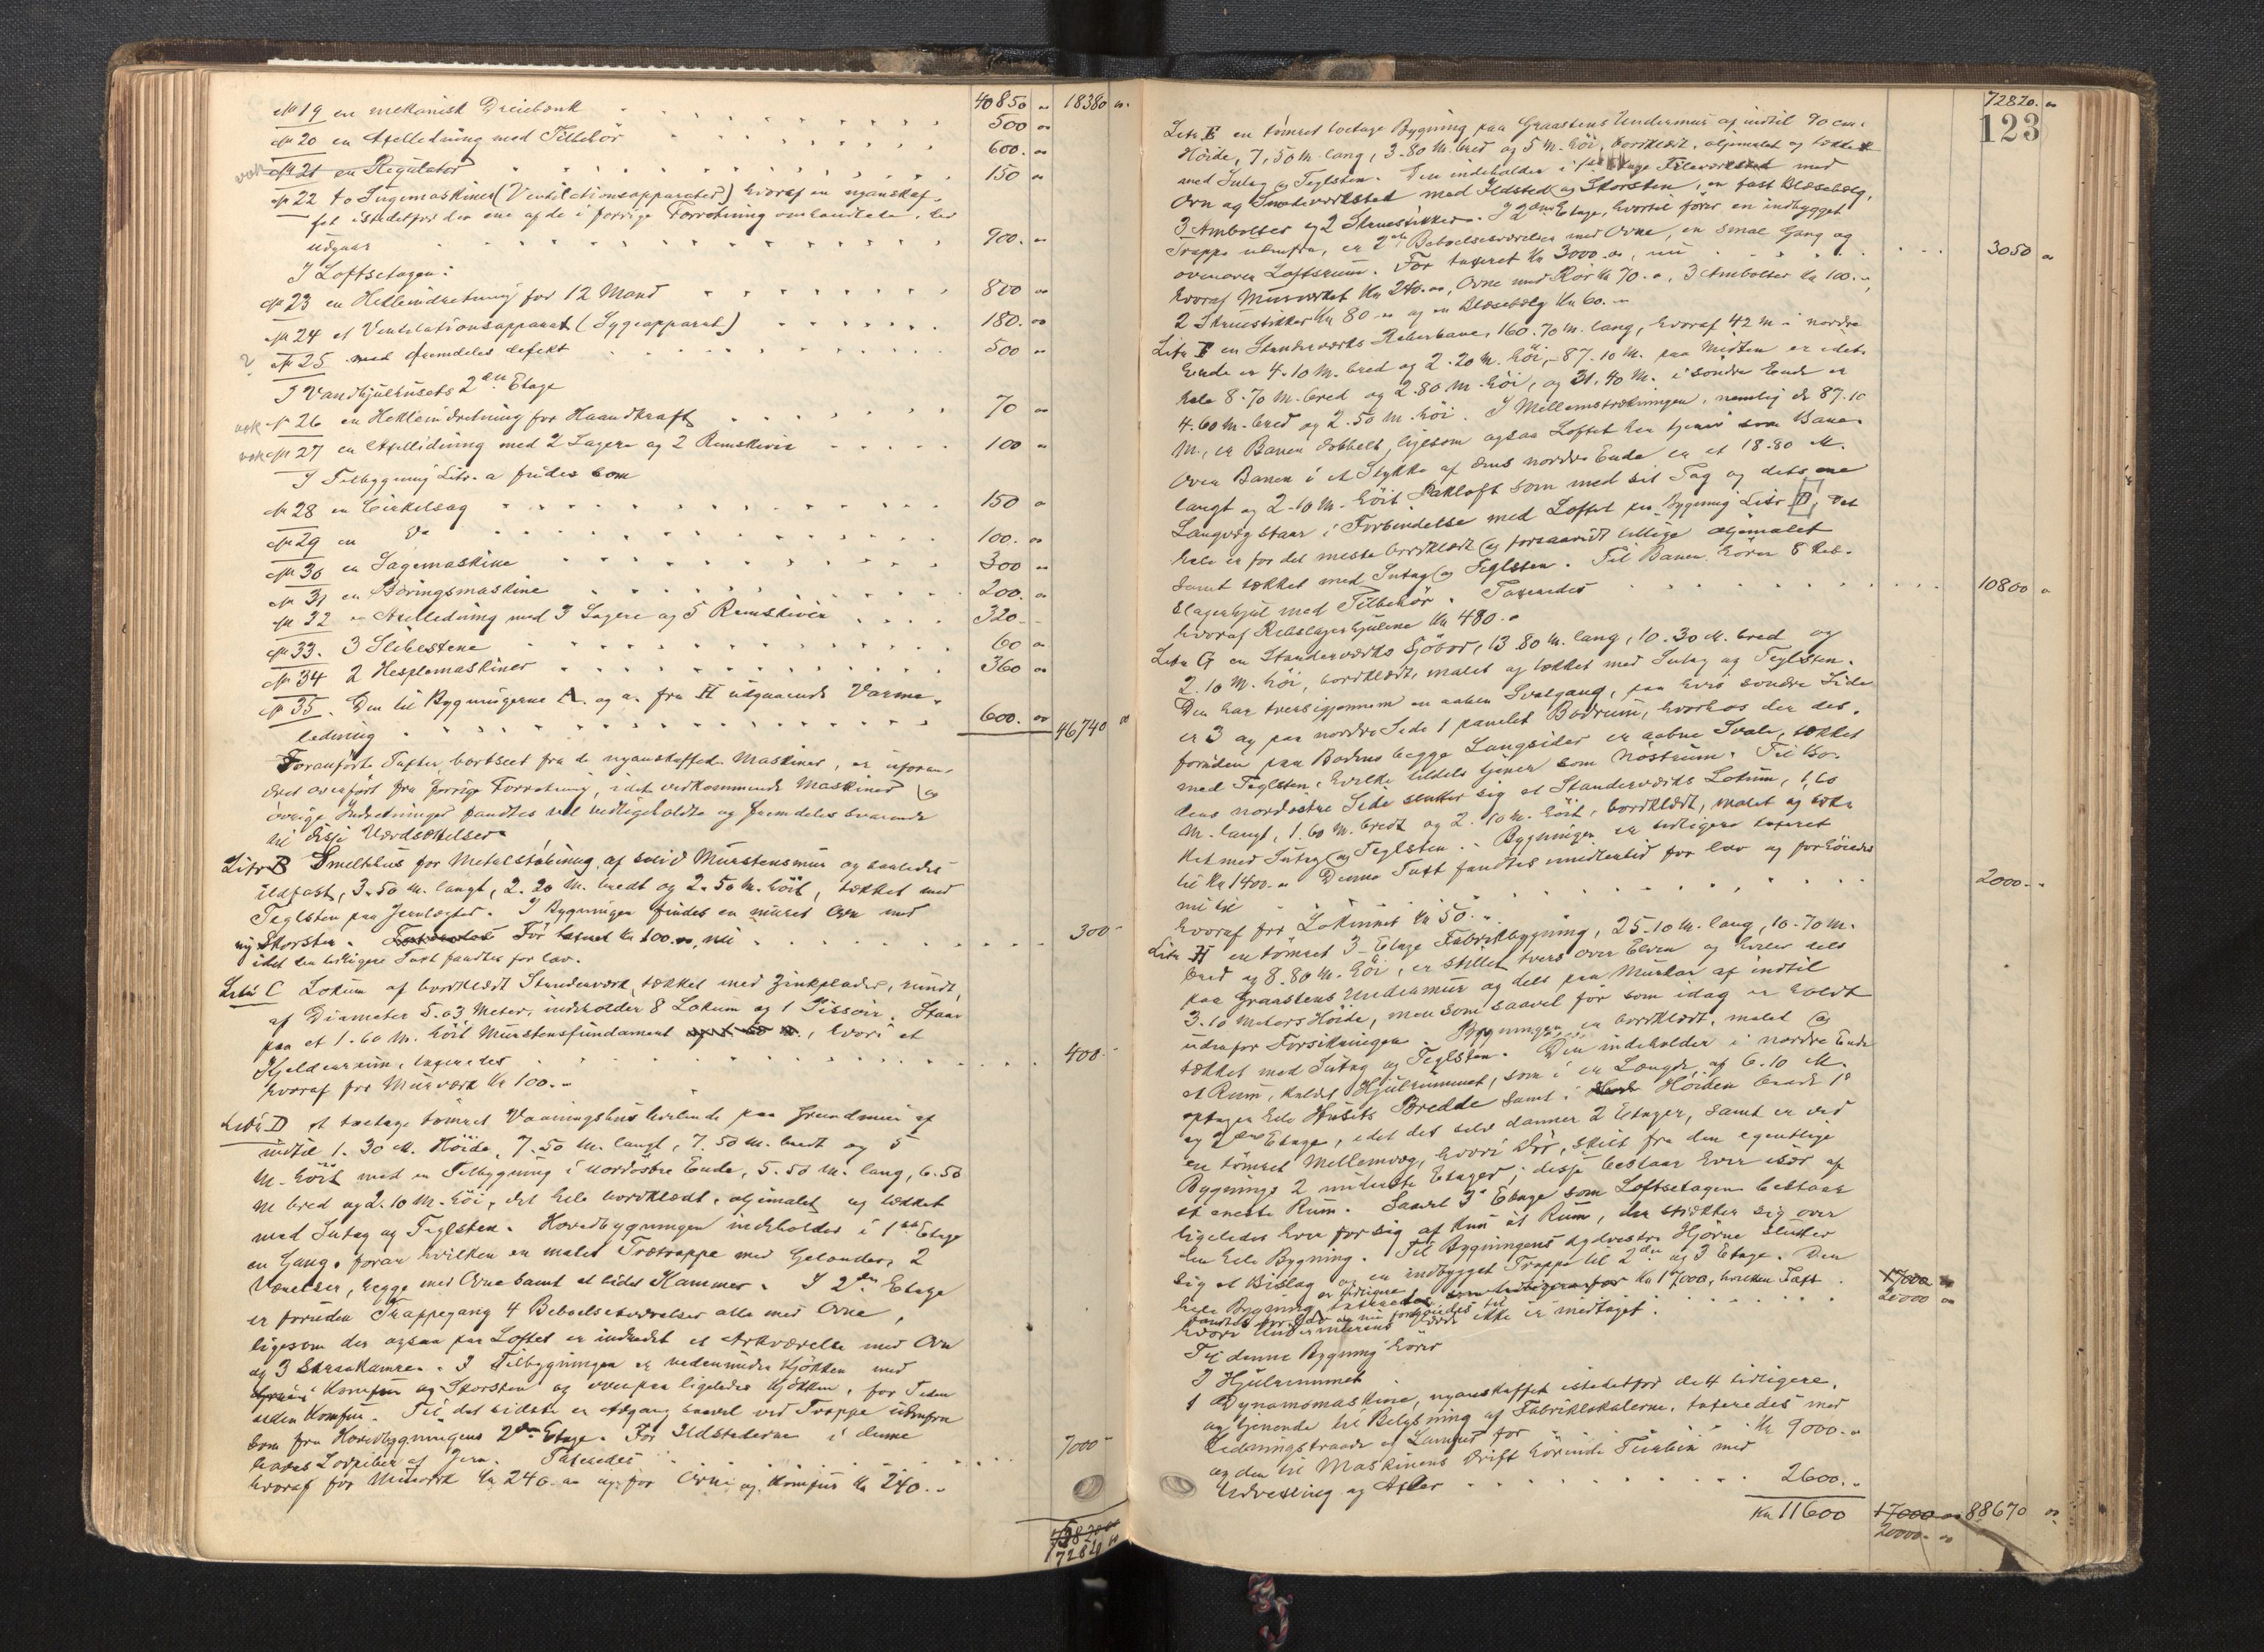 40850 " 18380 "
No 19 en mekanisk Dreiebænk 500 "
No 20 en Axelledning med Tilbehör 600. "
væk No 21 en Regulator 150 "
No 22 to Sugemaskiner (Ventilationsapparater) hvoraf en nyanskaf-
fet istedetfor den ene af de i forrige Forretning omhandlede, der
udgaar 900. "
I Loftsetagen:
No 23 en Hekleindretning for 12 Mand 800 "
No 24 et Ventilationsapparat (Sygeapparat) 180. "
? No 25 med fremdeles defekt 500 "
I Vandhjulhusets 2den Etage
væk No 26 en Hekleindretning for Haandkraft 70 "
væk No 27 en Axelledning med 2 Lagere og 2 Remskiver 100 "
I Tilbygning Litr. a findes som
No 28 en Cirkelsag 150 "
No 29 en Do 100. "
No 30 en Sagemaskine 300 "
No 31 en Boringsmaskine 200. "
No 32 en Axelledning med 3 Lagere og 5 Remskiver 320. -
No 33. 3 Slibestene 60 "
No 34 2 Hesplemaskiner 360 "
No 35. Den til Bygningerne A. og a. fra H udgaaende Varme-
ledning 600. " 46740 "
Foranførte Taxter, bortseet fra de nyanskaffede Maskiner, er uforan-
dret overført fra forrige Forretning, idet vedkommende Maskiner og
övrige Indretninger fandtes vel vedligeholdte og fremdeles svarende
til disse Værdsættelser.
Litr B Smeltehus for Metalstöbning af solid Murstensmur og saaledes
ildfast, 3.50 m. langt, 2.20 m. bredt og 2.50 m. höit, tækket med
Teglsten paa Jernlægter. I Bygningen findes en muret Ovn med
ny Skorsten. För taxeret Kr 100.00, nu 300 -
idet den tidligere Taxt fandtes for lav.
Litr C Lokum af bordklædt Standerværk tækket med Zinkplader, rundt,
af Diameter 5.03 Meter, indeholder 8 Lokum og 1 Pissoir. Staar
paa et 1.60 m. höit Murstensfundament, hvori et
Kjelderrum, taxeredes 400. -
hvoraf for Murværk Kr 100. -
Litr D et toetage tömret Vaaningshus hvilende paa Grundmur af
indtil 1.30 M. Höide, 7.50 m. langt, 7.50 m. bredt og 5
m. höit med en Tilbygning i nordöstre Ende, 5.50 m. lang, 6.50
m bred og 2.10 m. höi, det hele bordklædt, oljemalet og tækket
med Sutag og Teglsten. Hovedbygningen indeholder i 1ste Etage
en Gang, foran hvilken en malet Trætrappe med Gelænder, 2
Værelser, begge med Ovne samt et lidet Kammer. I 2den Etage
er foruden Trappegang 4 Beboelsesværelser alle med Ovne,
ligesom der ogsaa paa Loftet er indredet et Arkværelse med Ovn
og 3 Skraakamre. I Tilbygningen er nedenunder Kjökken med
Komfur og Skorsten og ovenpaa ligeledes Kjökken, for Tiden
uden Komfur. Til det sidste er Adgang saavel ved Trappe udenfra
som fra Hovedbygningens 2den Etage. For Ildstederne i denne
haves Lodpiber af Jern. Taxeredes 7000 -
hvoraf for Murværk Kr 240.00 og for Ovne og Komfur Kr 240. -
72820 "
72820. "
123
Litr E en tömret toetage Bygning paa Graastens Undermur af indtil 90 cm.
Höide, 7,50 m. lang, 3.80 m. bred og 5 m. höi, bordklædt, oljemalet og tækket
med Sutag og Teglsten. Den indeholder i 1ste Etage Fileværksted med
Ovn og Smedeværksted med Ildsted og Skorsten, en fast Blæsebælg,
3 Ambolter og 2 Skruestikker. I 2den Etage, hvortil fører en indbygget
Trappe udenfra, er 2de Beboelsesværelser med Ovne, en smal Gang og
ovenover Loftsrum. Før taxeret Kr 3000.00, nu 3050 "
hvoraf Murværket Kr 240.00, Ovne med Rör Kr 70.-, 3 Ambolter Kr 100.-,
2 Skruestikker Kr 80.- og en Blæsebælg Kr 60.-
Litr F en Standerværks Reberbane, 160.70 m. lang, hvoraf 42 m. i nordre
Ende er 4.10 m. bred og 2.20 m. höi, 87.10 m. paa Midten er idet
hele 8.70 m. bred og 2.80 m. höi, og 31.40 m. i söndre Ende er
4.60 m. bred og 2.50 m. höi. I Mellemstrækningen, nemlig de 87.10
m., er Banen dobbelt, ligesom ogsaa Loftet her tjener som Bane.
Over Banen i et Stykke af dens nordre Ende er et 18.80 M.
langt og 2.10 m. höit Pakloft som med sit Tag og dets ene
Langvæg staar i Forbindelse med Loftet paa Bygning Litr D. Det
hele er for det meste bordklædt og forsaavidt tillige oljemalet
samt tækket med Sutag og Teglsten. Til Banen hörer 8 Reb-
slagerhjul med Tilbehör. Taxeredes 10800 "
hvoraf Rebslagerhjulene Kr 480.-
Litr G en Standerværks Sjöbod, 13.80 m. lang, 10.30 M. bred og
2.10 m. höi, bordklædt, malet og tækket med Sutag og Teglsten.
Den har tversigjennem en aaben Svalgang, paa hvis söndre Side
er 3 og paa nordre Side 1 panelet Bodrum, hvorhos der des-
foruden paa Bodens begge Langsider er aabne Svale, tækket
med Teglsten, hvilke tildels tjener som Nöstrum. Til Bo-
dens nordöstre Side slutter sig et Standerværks Lokum, 1.60
m. langt, 1.60 m. bredt og 2.10 m. höit, bordklædt, malet og tæk-
ket med Sutag og Teglsten. Bygningen er tidligere taxeret
til Kr 1400.- Denne Taxt fandtes imidlertid for lav og forhöiedes
nu til 2000. -
hvoraf for Lokummet Kr 50.-
Litr H en tömret 3 Etage Fabrikbygning, 25.10 m. lang, 10.70 m.
bred og 8.80 m. höi, er stillet tvers over Elven og hviler dels
paa Graastens Undermur og dels paa Murkar af indtil
3.10 Meters Höide, men som saavel för som idag er holdt
udenfor Forsikringen. Bygningen er bordklædt, malet og
tækket med Sutag og Teglsten. Den indeholder i nordre Ende
et Rum, kaldet Hjulrummet, som i en Længde af 6.10 M.
optager hele Husets Bredde samt i Höiden baade 1ste
og 2den Etage, idet det selv danner 2 Etager, samt er ved
en tömret Mellemvæg, hvori Dör, skilt fra den egentlige
Bygnings 2 underste Etager; disse bestaar hver især af
et eneste Rum. Saavel 3die Etage som Loftsetagen bestaar
ligeledes hver for sig af kun et Rum, der strækker sig over
den hele Bygning. Til Bygningens sydvestre Hjörne slutter
sig et Bislag og en indbygget Trappe til 2den og 3 Etage. Den
hele Bygning er tidligere taxeret for Kr 17000, hvilken Taxt 17000 "
fandtes for lav og nu forhöiedes til 20000 "
hvori Undermurens Værdi ikke er medtaget.
Til denne Bygning hörer
I Hjulrummet
1 Dynamomaskine, nyanskaffet istedetfor de 4 tidligere,
og tjenende til Belysning af Fabriklokalerne, taxeredes med
Ledningstraade og Lamper for Kr 9000.-
og den til Maskinens Drift hörende Turbin med
Udvexling og Axler 2600.-
Kr 11600 17000 " 88670 "
20000. "